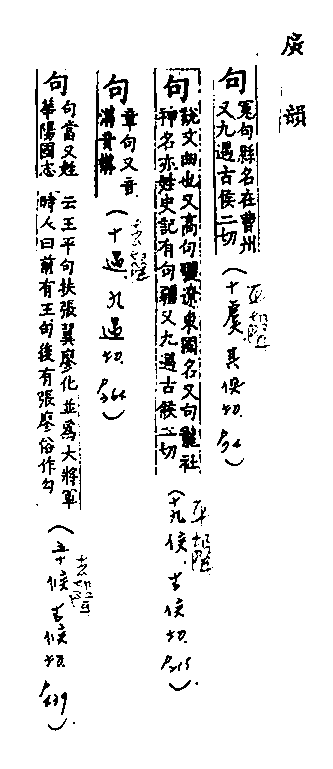 廣韻
句 冤句縣名在曹州
又九遇古侯二切
(十虞其俱切. P.76)
句 說文曲也又高句驪遼東國名又句龍社
神名亦姓史記有句彊又九遇古侯二切
(十九侯.古侯切. P.215)
句 章句又音
溝貫搆
(十遇.九遇切. P.364)
句 句當又姓
華陽國志
云王平句扶張翼廖化並為大將軍
時人曰前有王句後有張廖俗作勾
(五十候.古候切. P.439)